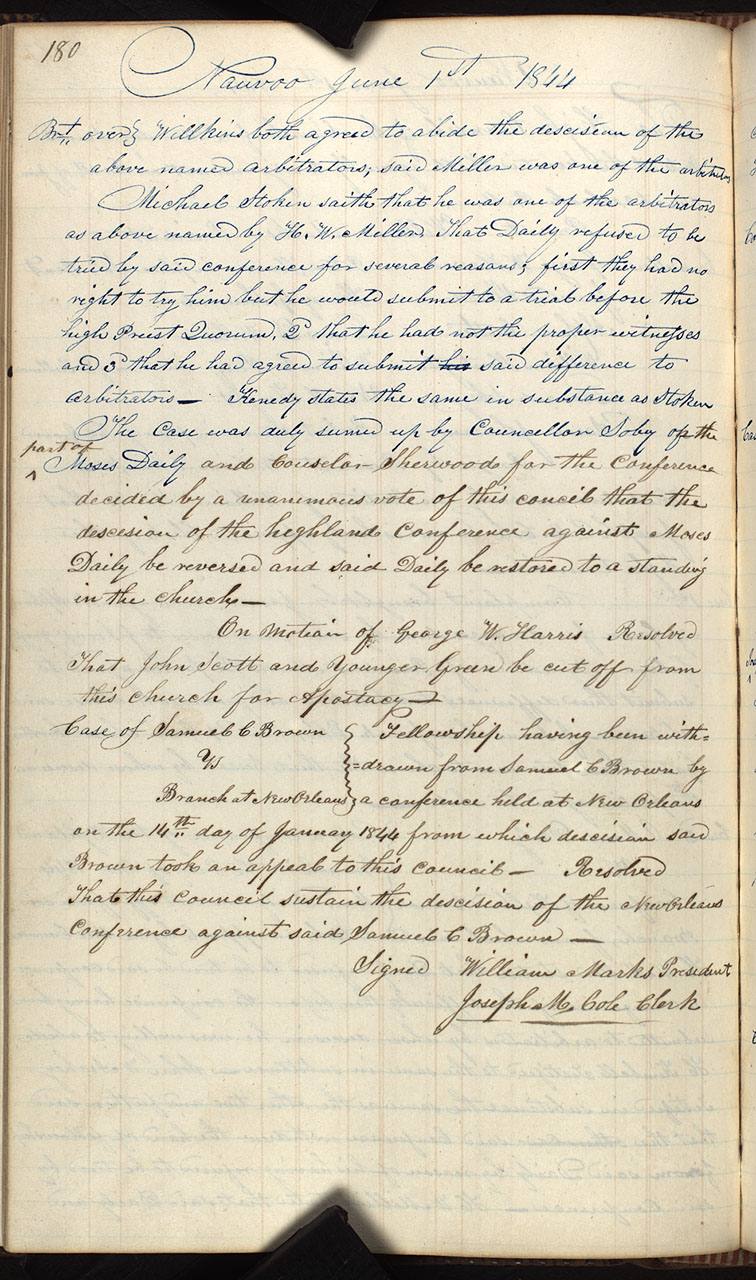 180
Nauvoo June 1st 1844
Brt over} Willkins both agreed to abide the descisean of the
above named arbitrators, said Miller was one of the arbitrators
Michael Stoker saith that he was one of the arbitrators
as above named by H. W. Miller That Daily refused to be
tried by said conference for several reasons; first they had no
right to try him but he would submit to a trial before the
high Priest Quorum, 2d that he had not the proper witnesses
and 3d that he had agreed to submit his said difference to
arbitrators— Kenedy states the same in substance as Stoker
The Case was duly sumed up by Councellor Soby on the
part of
^ Moses Daily and Counselor Sherwood for the Conference
decided by a unanumous vote of this concil that the
descesion of the heghland Conference against Moses
Daily be reversed and said Daily be restored to a standing
in the church—
On Motion of George W. Harris Resolved
That John Scott and Younger Green be cut off from
this church for Apostacy—
Case of Samuel C Brown } Fellowship having been with=
Vs =drawn from Samuel C Brown by
Branch at New Orleans a conference held at New Orleans
on the 14th day of Januay 1844 from which descisian said
Brown took an appeal to this council— Resolved
That this council sustain the descision of the New Orleans
Conference against said Samuel C Brown—
Signed William Marks President
Joseph M. Cole Clerk